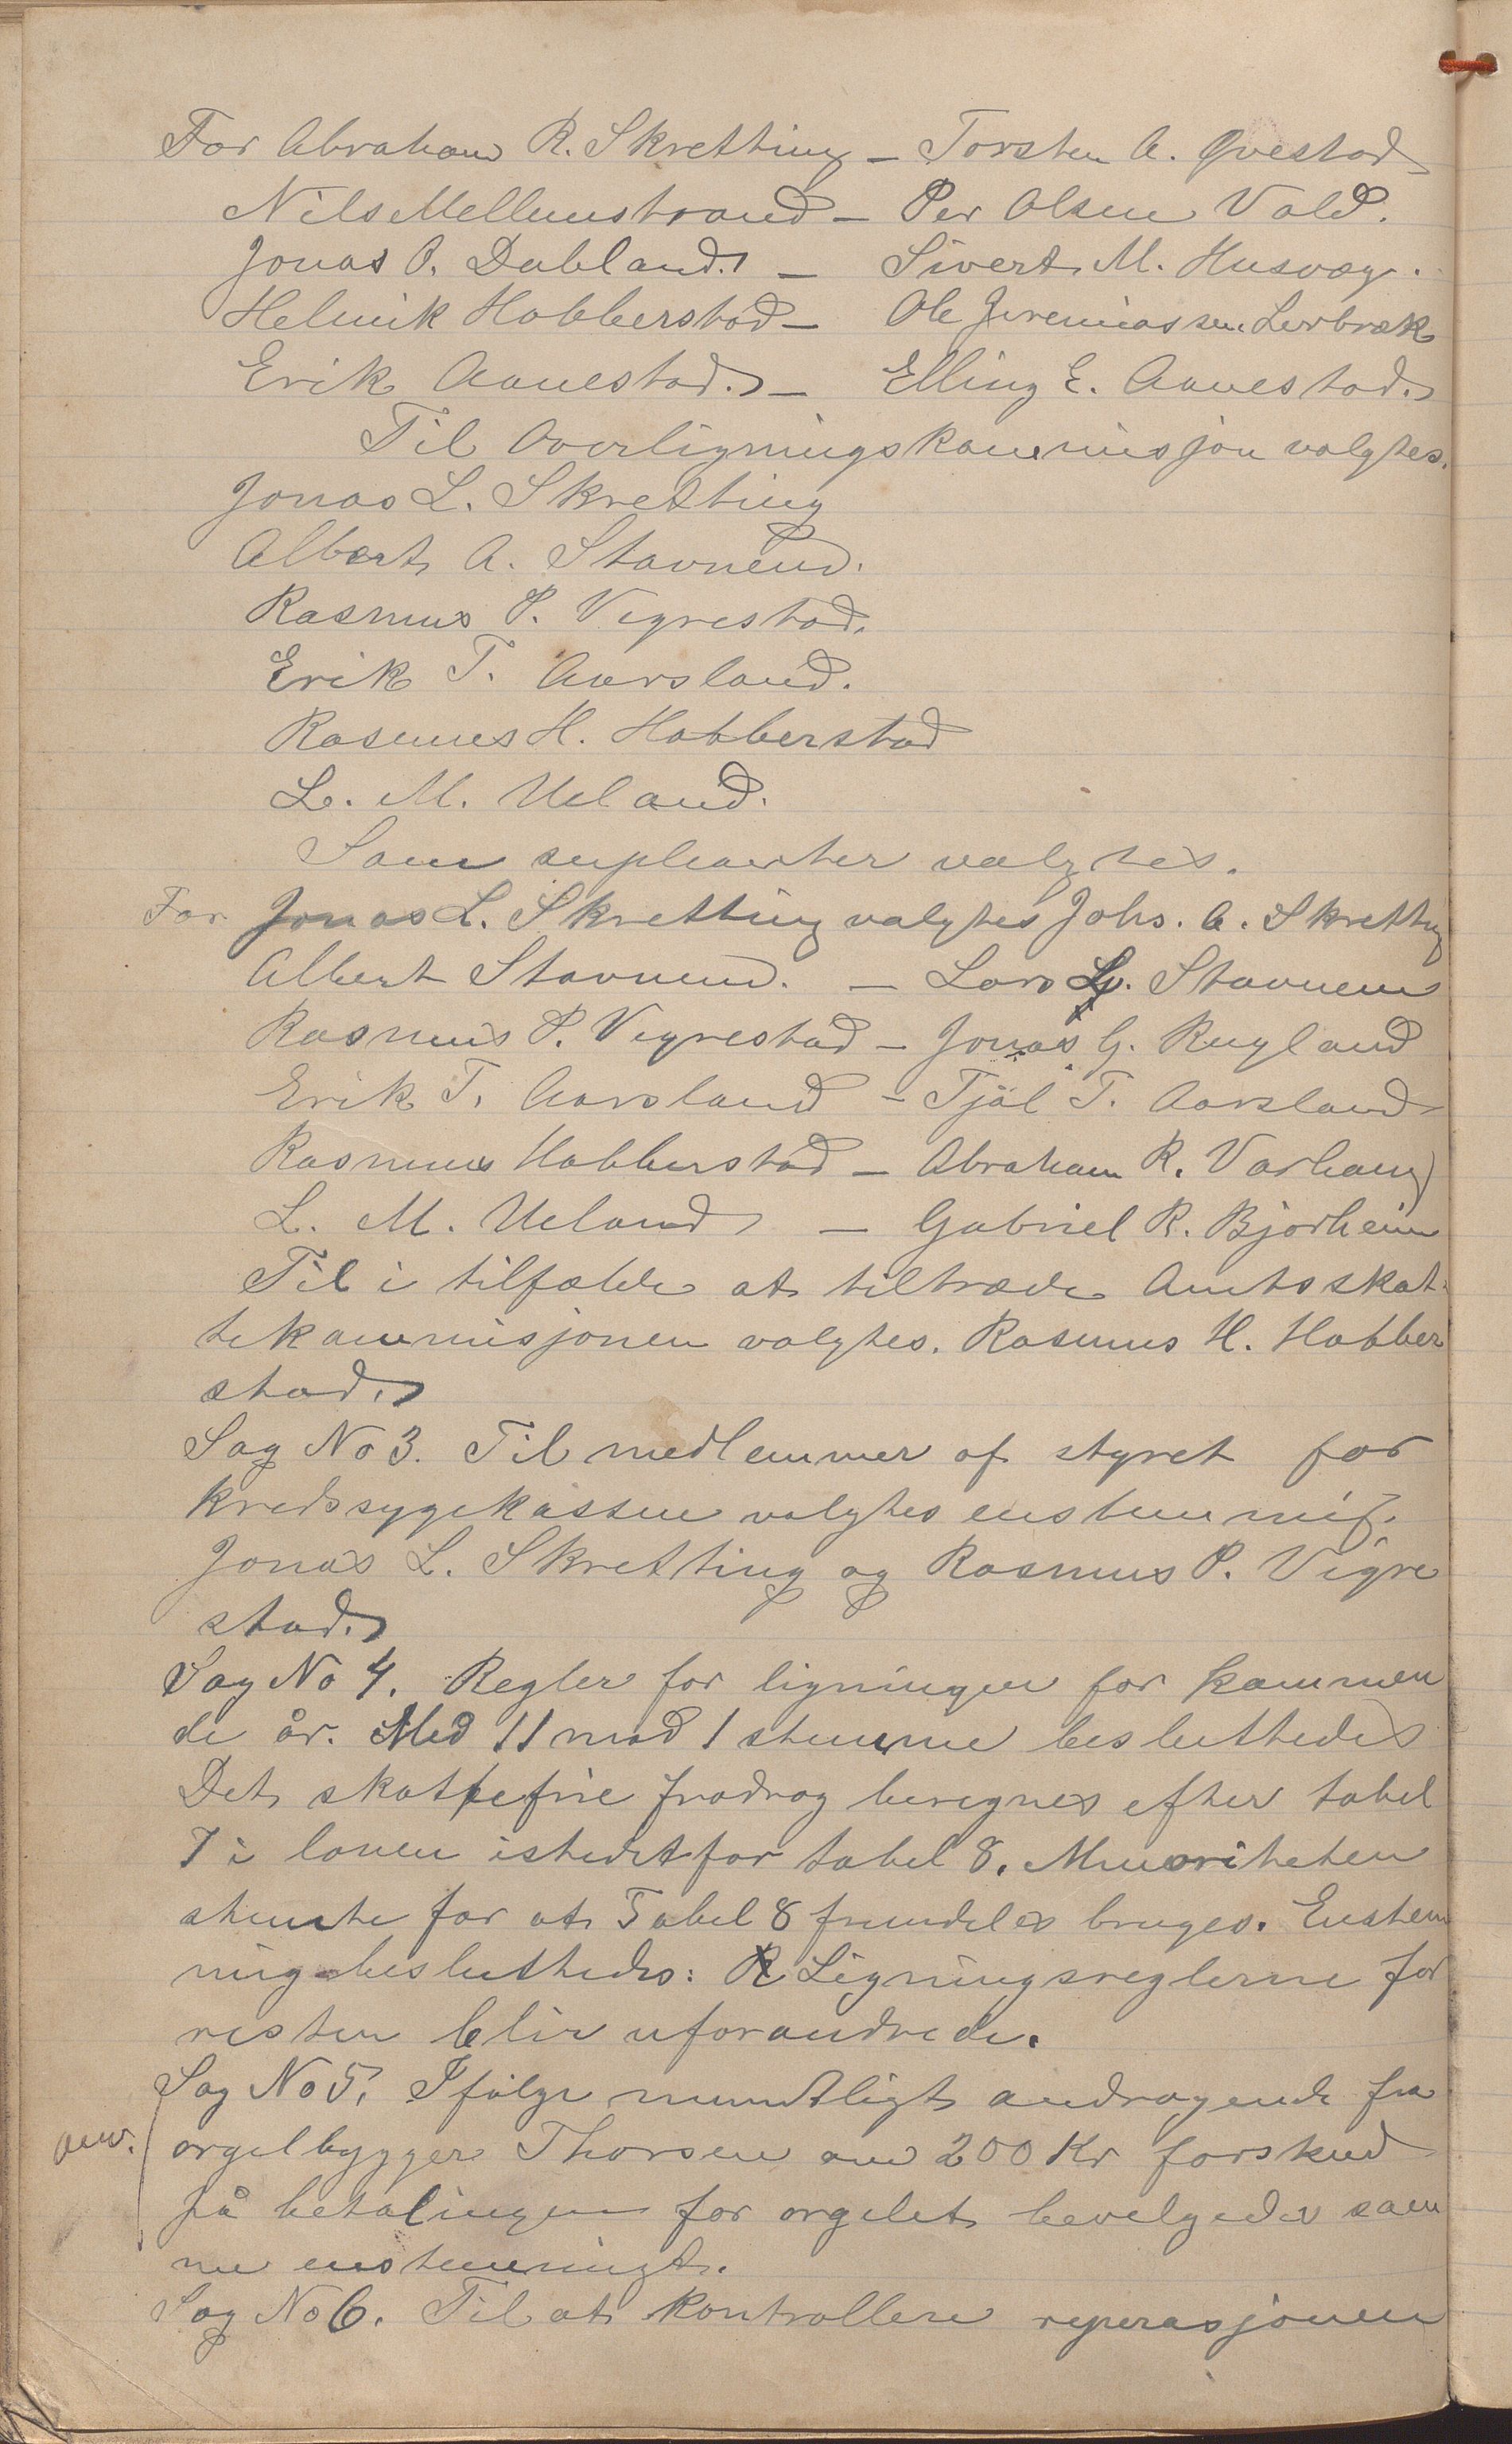 For Abraham R. Skretting – Torsten A. Qvestad
Nils Mellemstrand – Per Olsen Vold.
Jonas O. Dubland. – Sivert M. Husvæg.
Helmik Hobberstad – Ole Jeremiassen Lerbræk
Erik Aanestad. – Elling E. Aanestad.
Til Overligningskommisjon valgtes.
Jonas L. Skretting
Albert A. Stavnem.
Rasmus P. Vigrestad.
Erik T. Aarsland.
Rasmus H. Hobberstad
L. M. Ueland.
Som supleanter valgtes.
For Jonas L. Skretting valgtes Johs. A. Skretting
Albert Stavnem. – Lars L. Stavnem
Rasmus P. Vigrestad – Jonas G. Rugland
Erik T. Aarsland – Tjöl T. Aarsland
Rasmus Hobberstad – Abraham R. Varhaug
L. M. Ueland – Gabriel R. Bjorheim
Til i tilfælde at tiltræde Amtsskat-
tekommisjonen valgtes. Rasmus H. Hobber
stad.
Sag No 3. Til medlemmer af styret for
kredssygekassen valgtes enstemmig.
Jonas L. Skretting og Rasmus P. Vigre
stad.
Sag No 4. Regler for ligningen for kommen
de år. Med 11 mod 1 stemme besluttedes
Det skattefrie fradrag beregnes efter tabel
7 i loven istedetfor tabel 8. Minoriteten
stemte for at Tabel 8 fremdeles bruges. Enstem
mig besluttedes: Ligningsreglerne for
resten blir uforandrede.
Sag No 5. Ifölge mundtligt andragende fra
anv. orgelbygger Thorsen om 200 Kr forskud
på betalingen for orgelet bevilgedes sam
me enstemmigt.
Sag No 6. Til at kontrollere reperasjonen